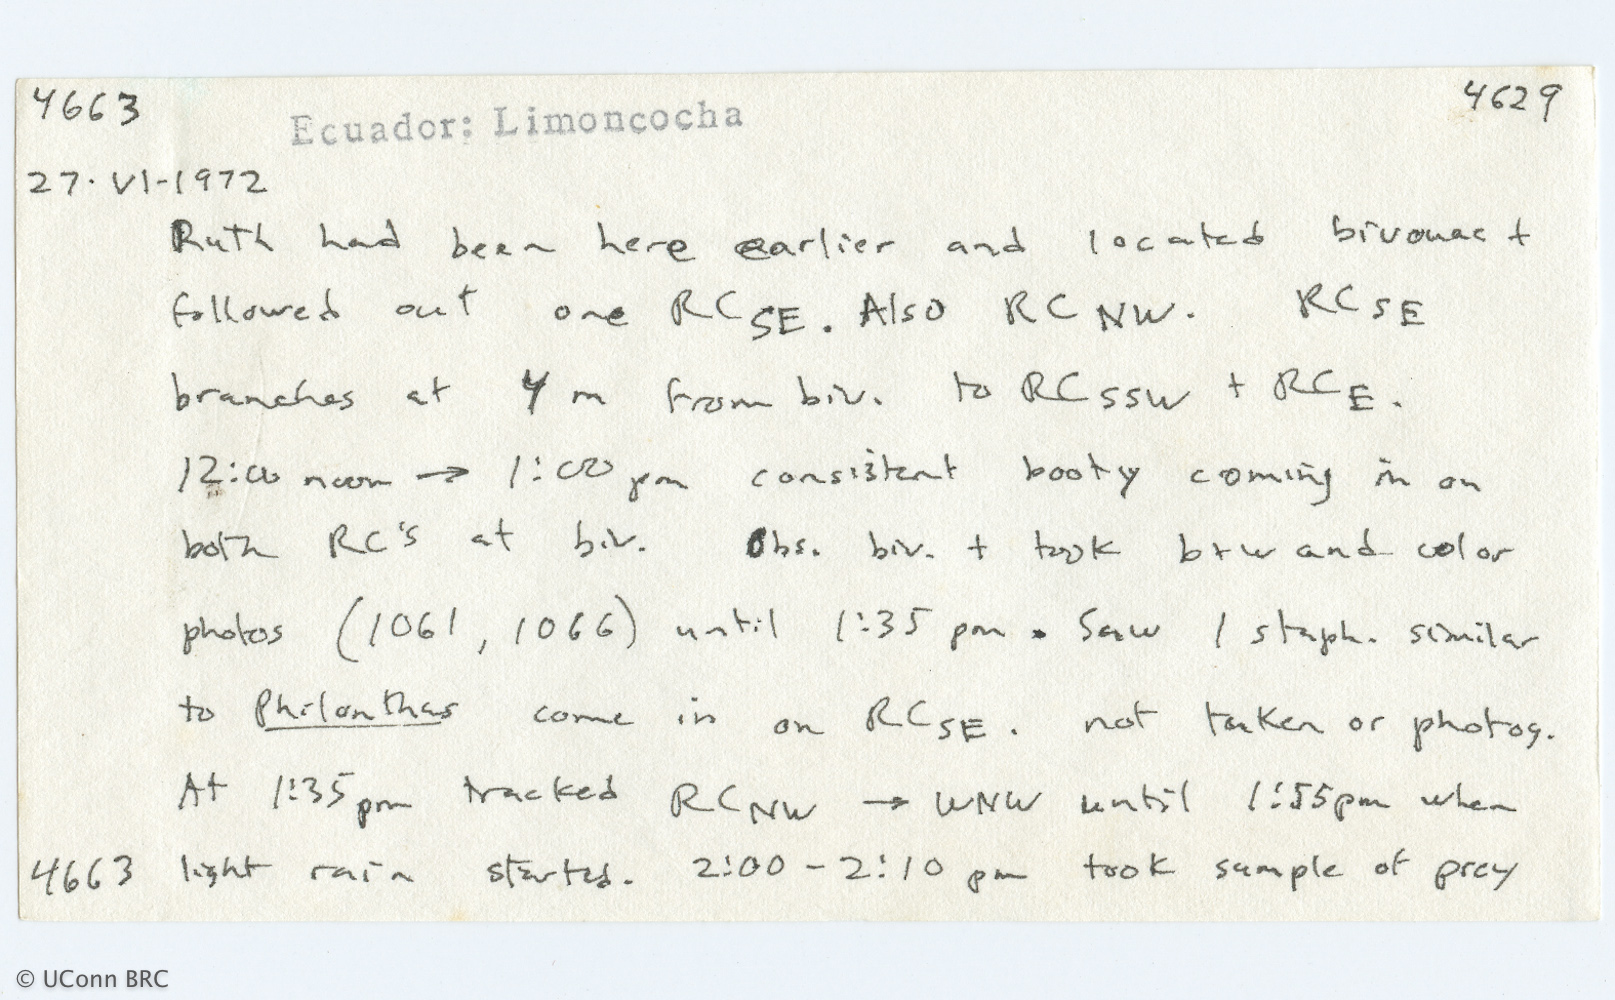 4663 Ecuador: Limoncocha 4629
27·VI-1972
Ruth had been here earlier and located bivouac +
followed out one RC SE. Also RC NW. RC SE
branches at 4 m from biv. to RC SSW + RC E.
12:00 noon → 1:00 pm consistent booty coming in on
both RC's at biv. Obs. biv. + took b+w and color
photos (1061, 1066) until 1:35 pm. Saw 1 staph. similar
to Philonthus come in on RC SE. not taken or photog.
At 1:35pm tracked RC NW → WNW until 1:55pm when
4663 light rain started. 2:00 - 2:10 pm took sample of prey
© UConn BRC